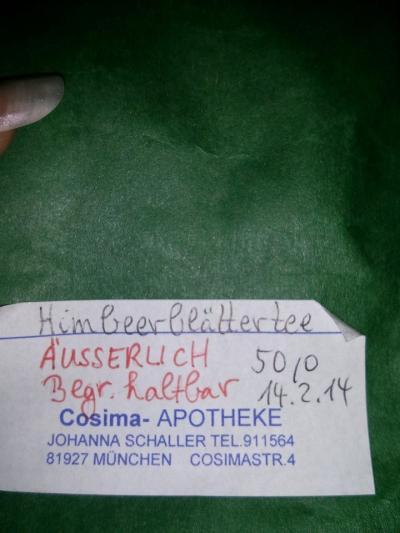 Himbeerblättertee
ÄUSSERLICH 50,0
Begr. haltbar 14.2.14
Cosima- APOTHEKE
JOHANNA SCHALLER TEL.911564
81927 MÜNCHEN COSIMASTR.4